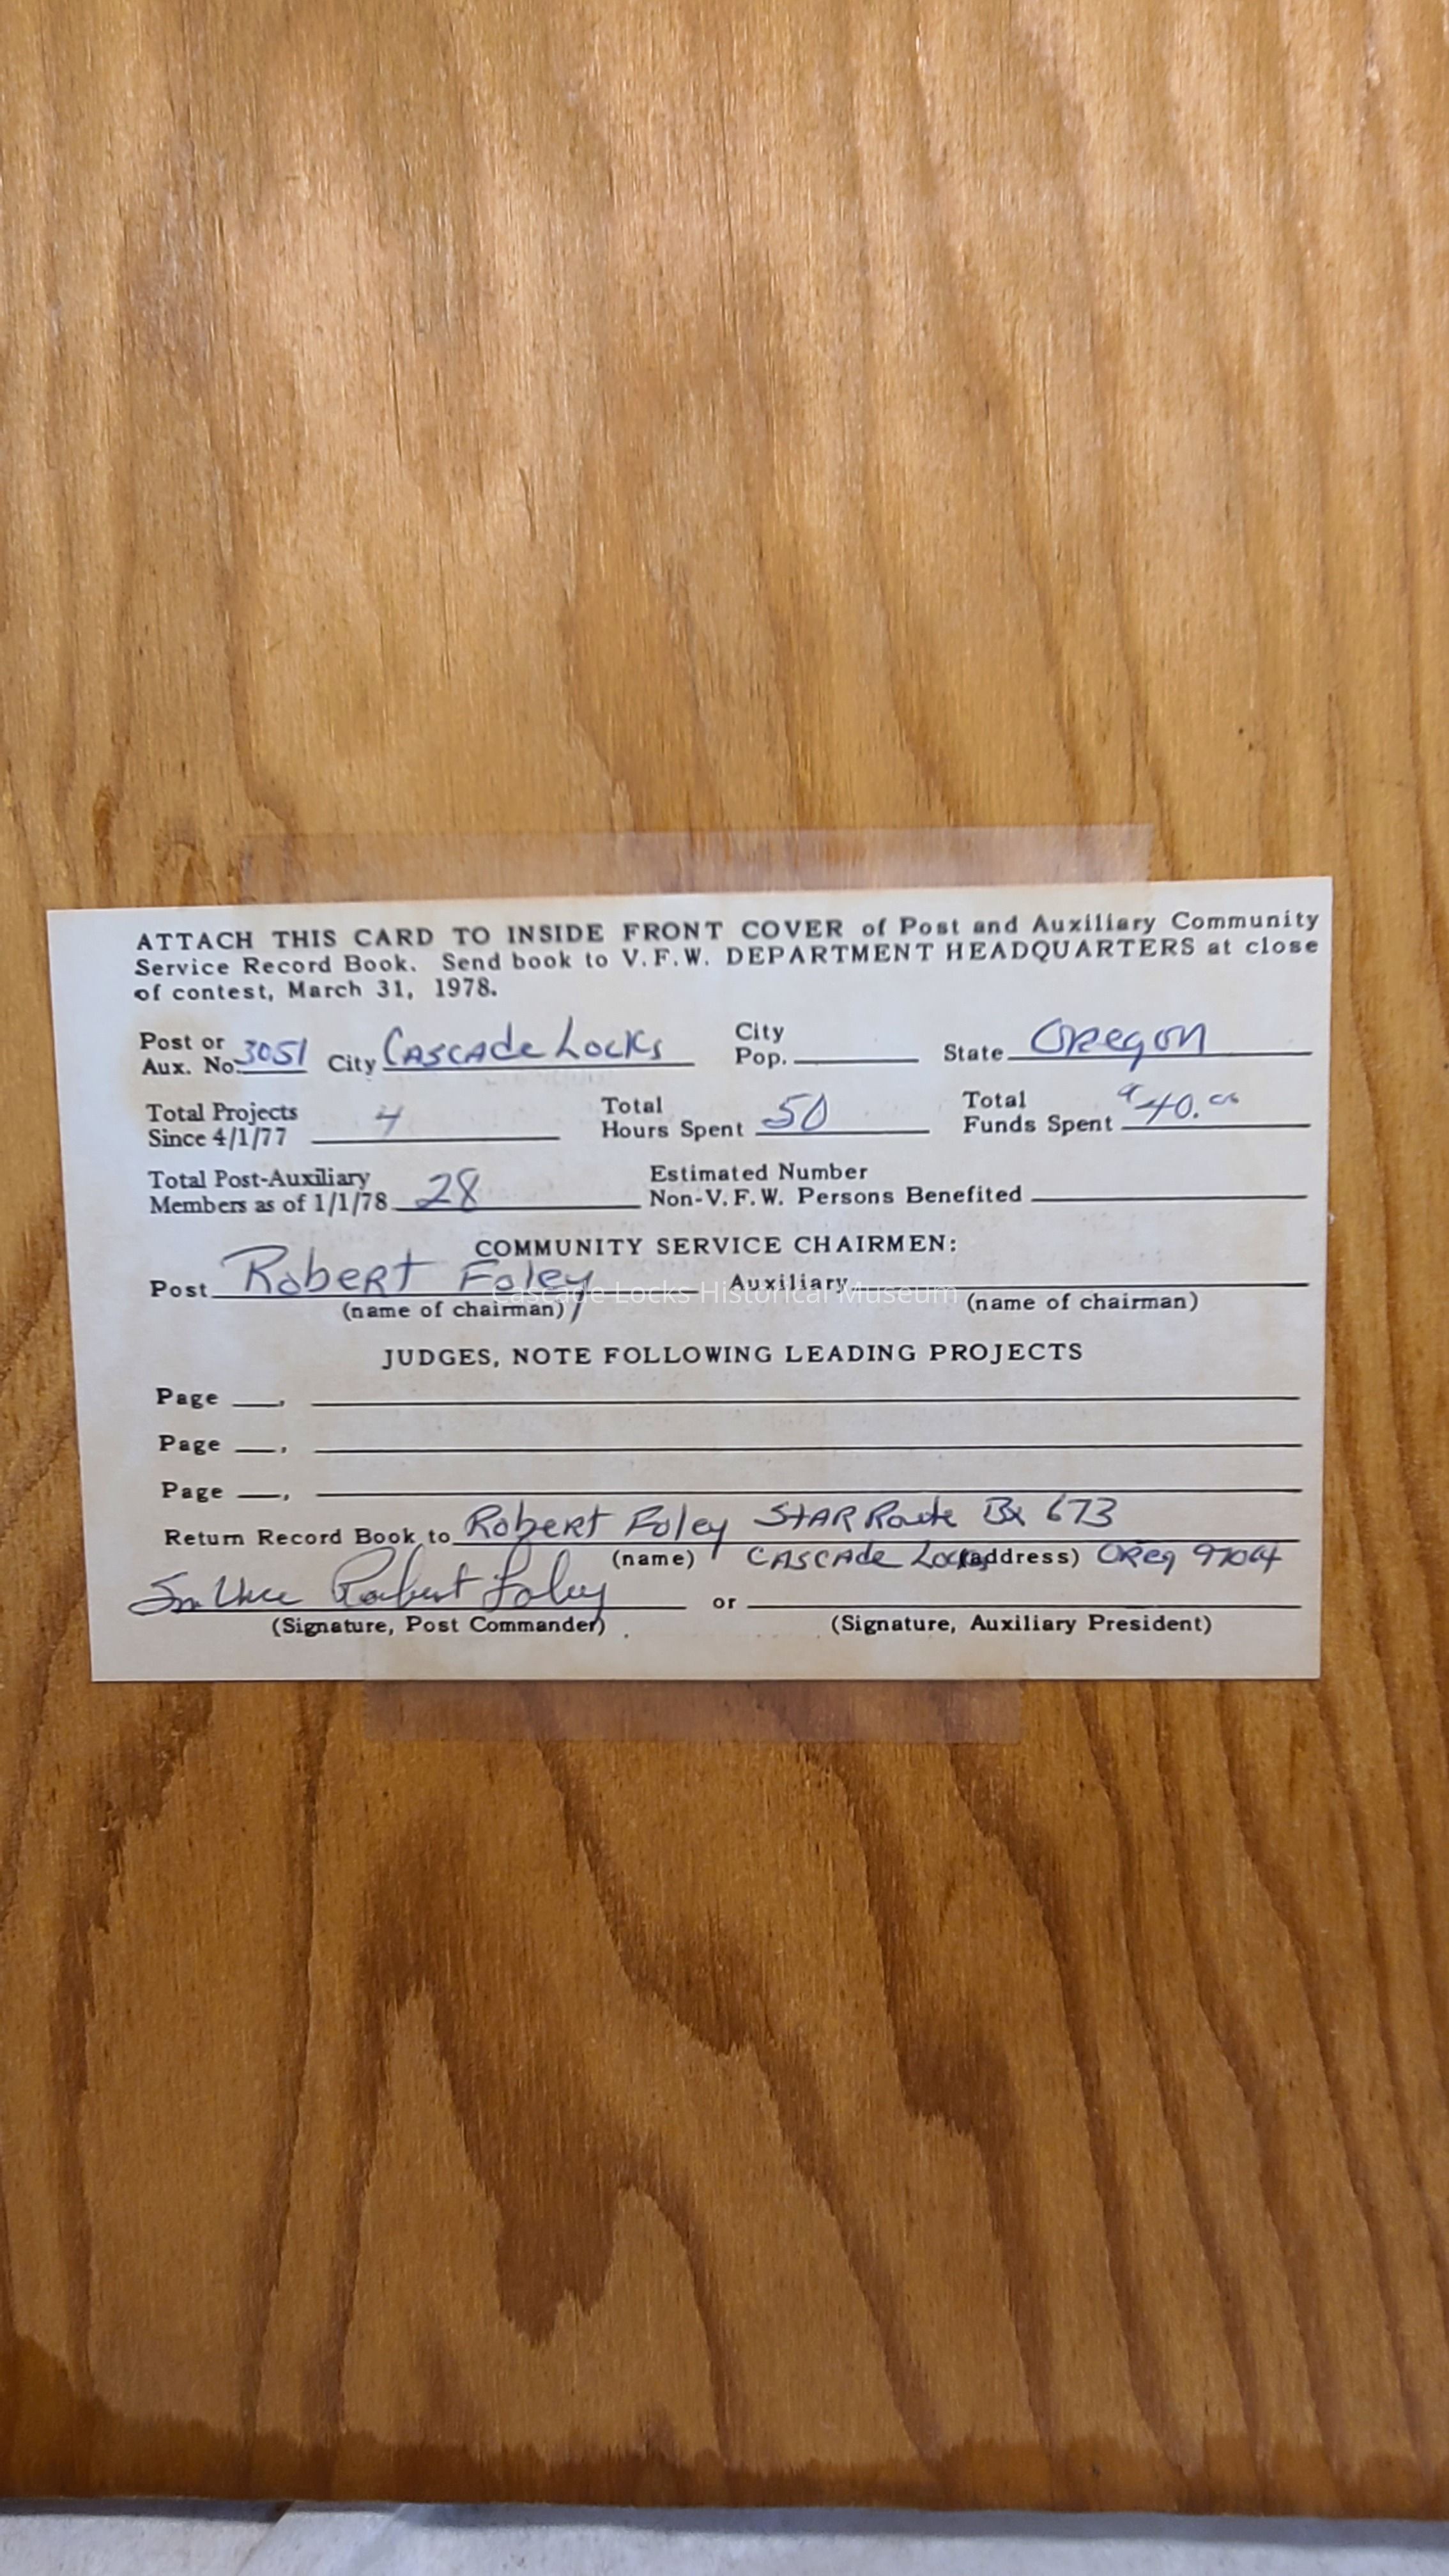 ATTACH THIS CARD TO INSIDE FRONT COVER of Post and Auxiliary Community
Service Record Book. Send book to V.F.W. DEPARTMENT HEADQUARTERS at close
of contest, March 31, 1978.
Post or Aux. No. 3051 City Cascade Locks City Pop. State Oregon
Total Projects Since 4/1/77 4 Total Hours Spent 50 Total Funds Spent $40.00
Total Post-Auxiliary Members as of 1/1/78 28 Estimated Number Non-V.F.W. Persons Benefited
COMMUNITY SERVICE CHAIRMEN:
Post Robert Foley Auxiliary
(name of chairman) (name of chairman)
Cascade Locks Historical Museum
JUDGES, NOTE FOLLOWING LEADING PROJECTS
Page ,
Page ,
Page ,
Return Record Book to Robert Foley Star Route Bx 673
(name) Cascade Locks (address) Oreg
Sr Vice Robert Foley or
(Signature, Post Commander) (Signature, Auxiliary President)